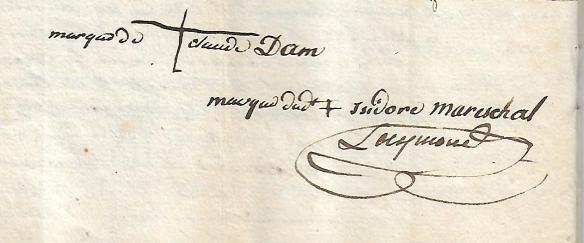 marque de + claude Dam
marque dudt + Isidore mareschal